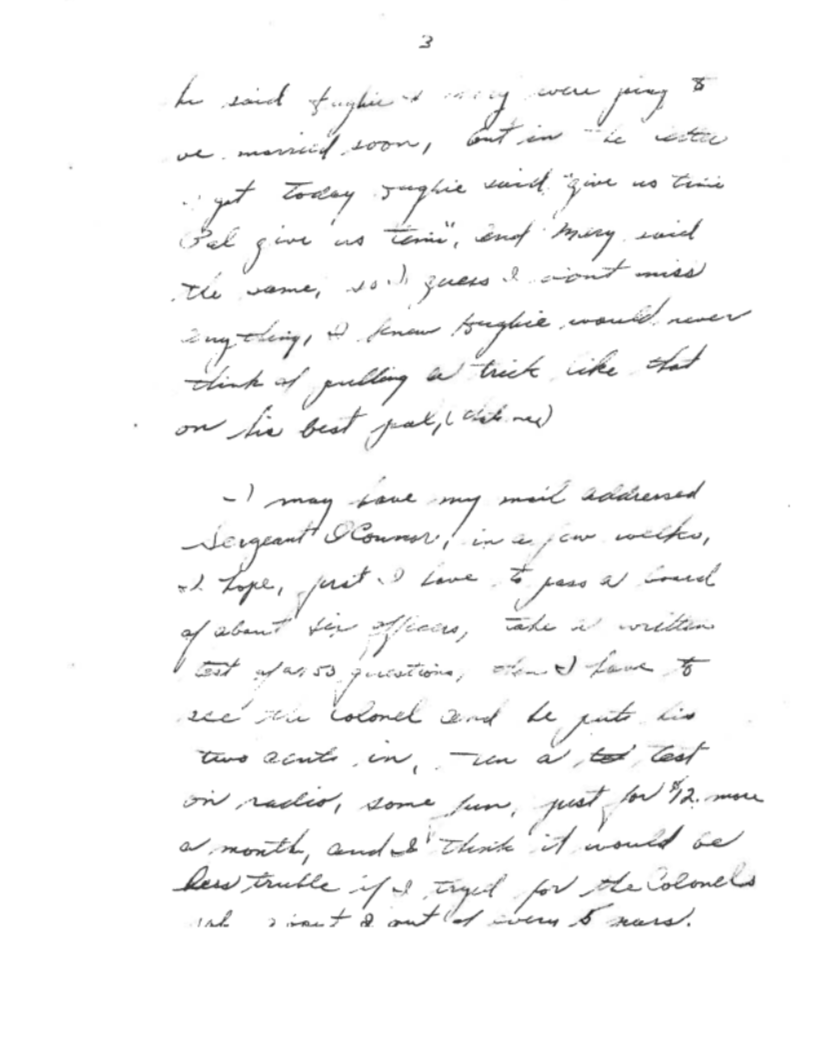 3
he said Hughie & Mary were going to
be married soon, but in the letter
I got today Hughie said "give us time
Pal give us time", and Mary said
the same, so I guess I wont miss
anything, I knew Hughie would never
think of pulling a trick like that
on his best pal, (that me)
I may have my mail addressed
Sergeant O'Connor, in a few weeks,
I hope, first I have to pass a board
of about six officers, take a written
test of 50 questions, then I have to
see the Colonel and he puts his
two cents in, Then a test
on radio, some fun, just for $12. more
a month, and I think it would be
less truble if I tryed for the Colonels
out of every 5 years.